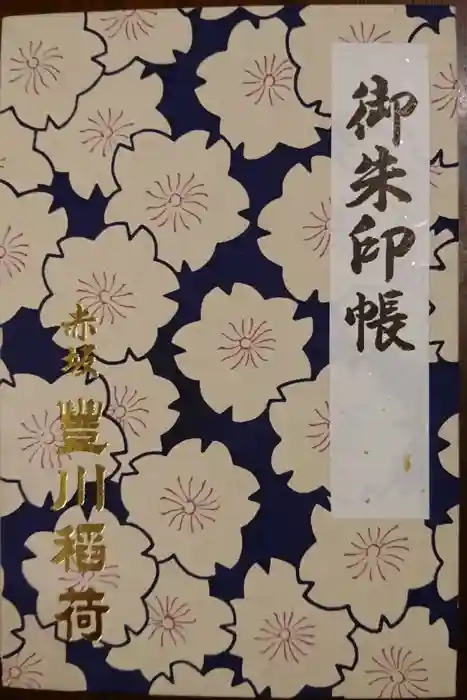 御朱印帳
赤坂
豐川稲荷